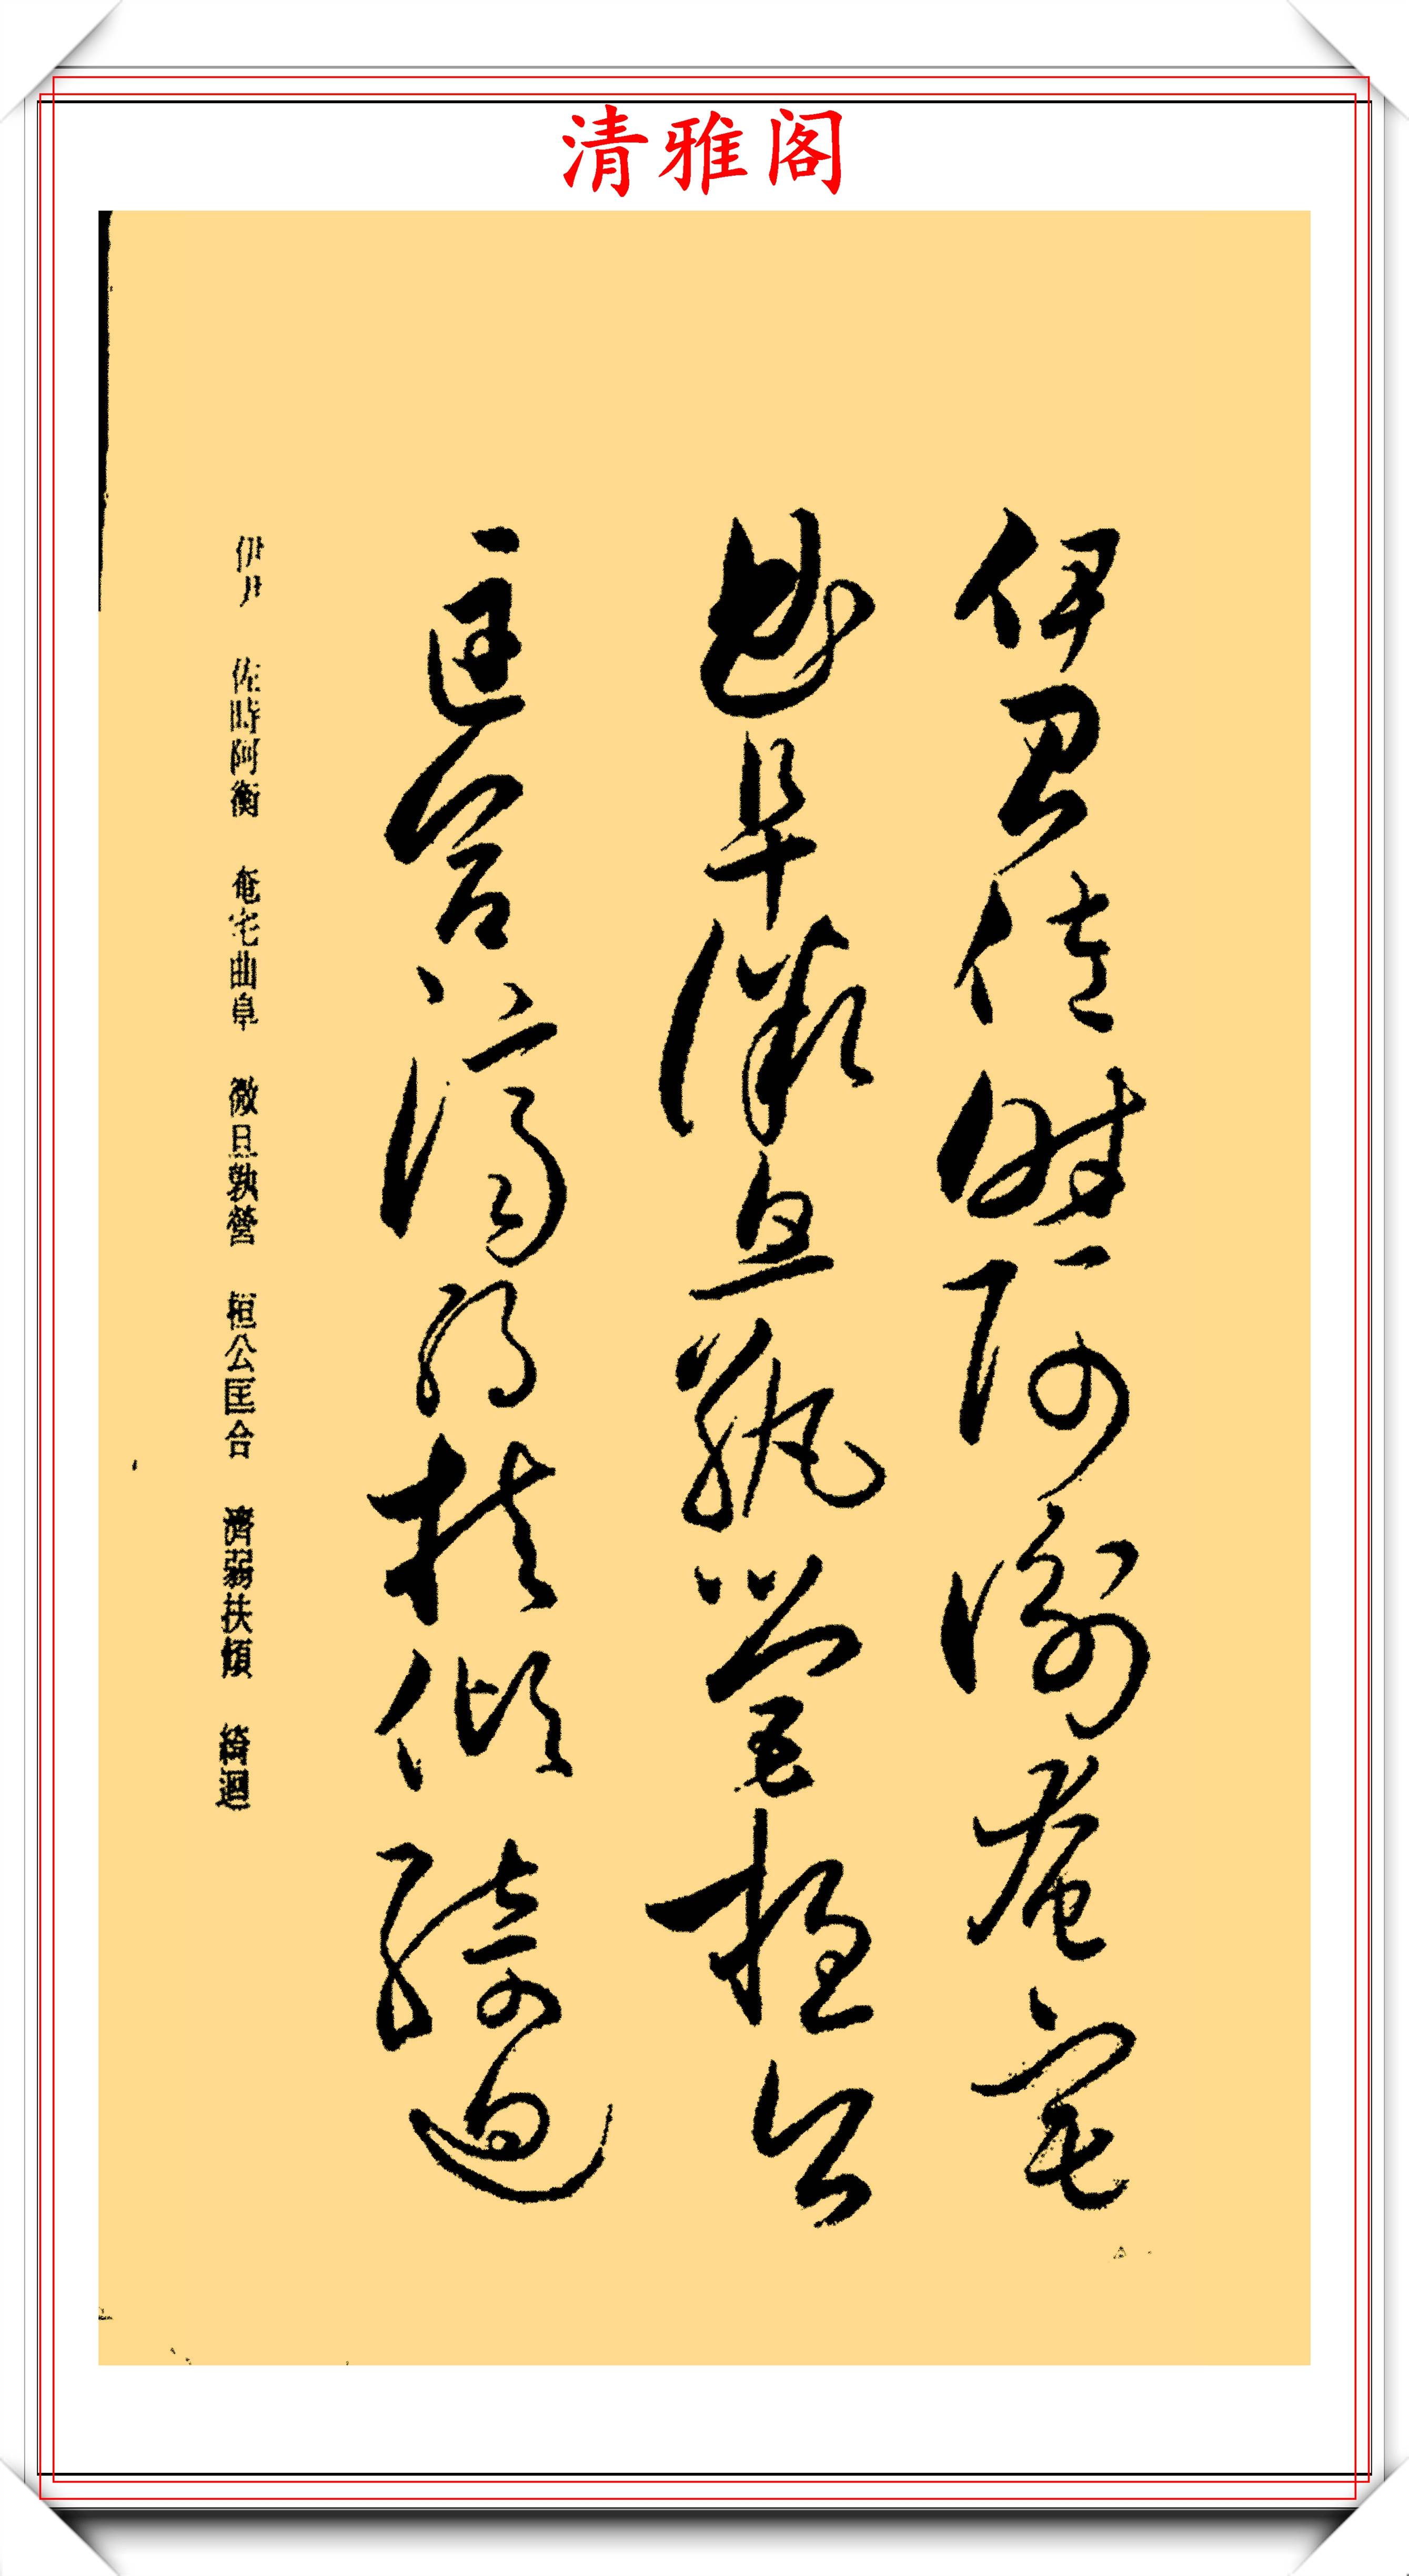 清雅阁
伊尹佐時阿衡奄宅
曲阜微旦孰營桓公
匡合濟弱扶傾綺迴
伊尹 佐時阿衡 奄宅曲阜 微旦孰營 桓公匡合 濟弱扶傾 綺迴